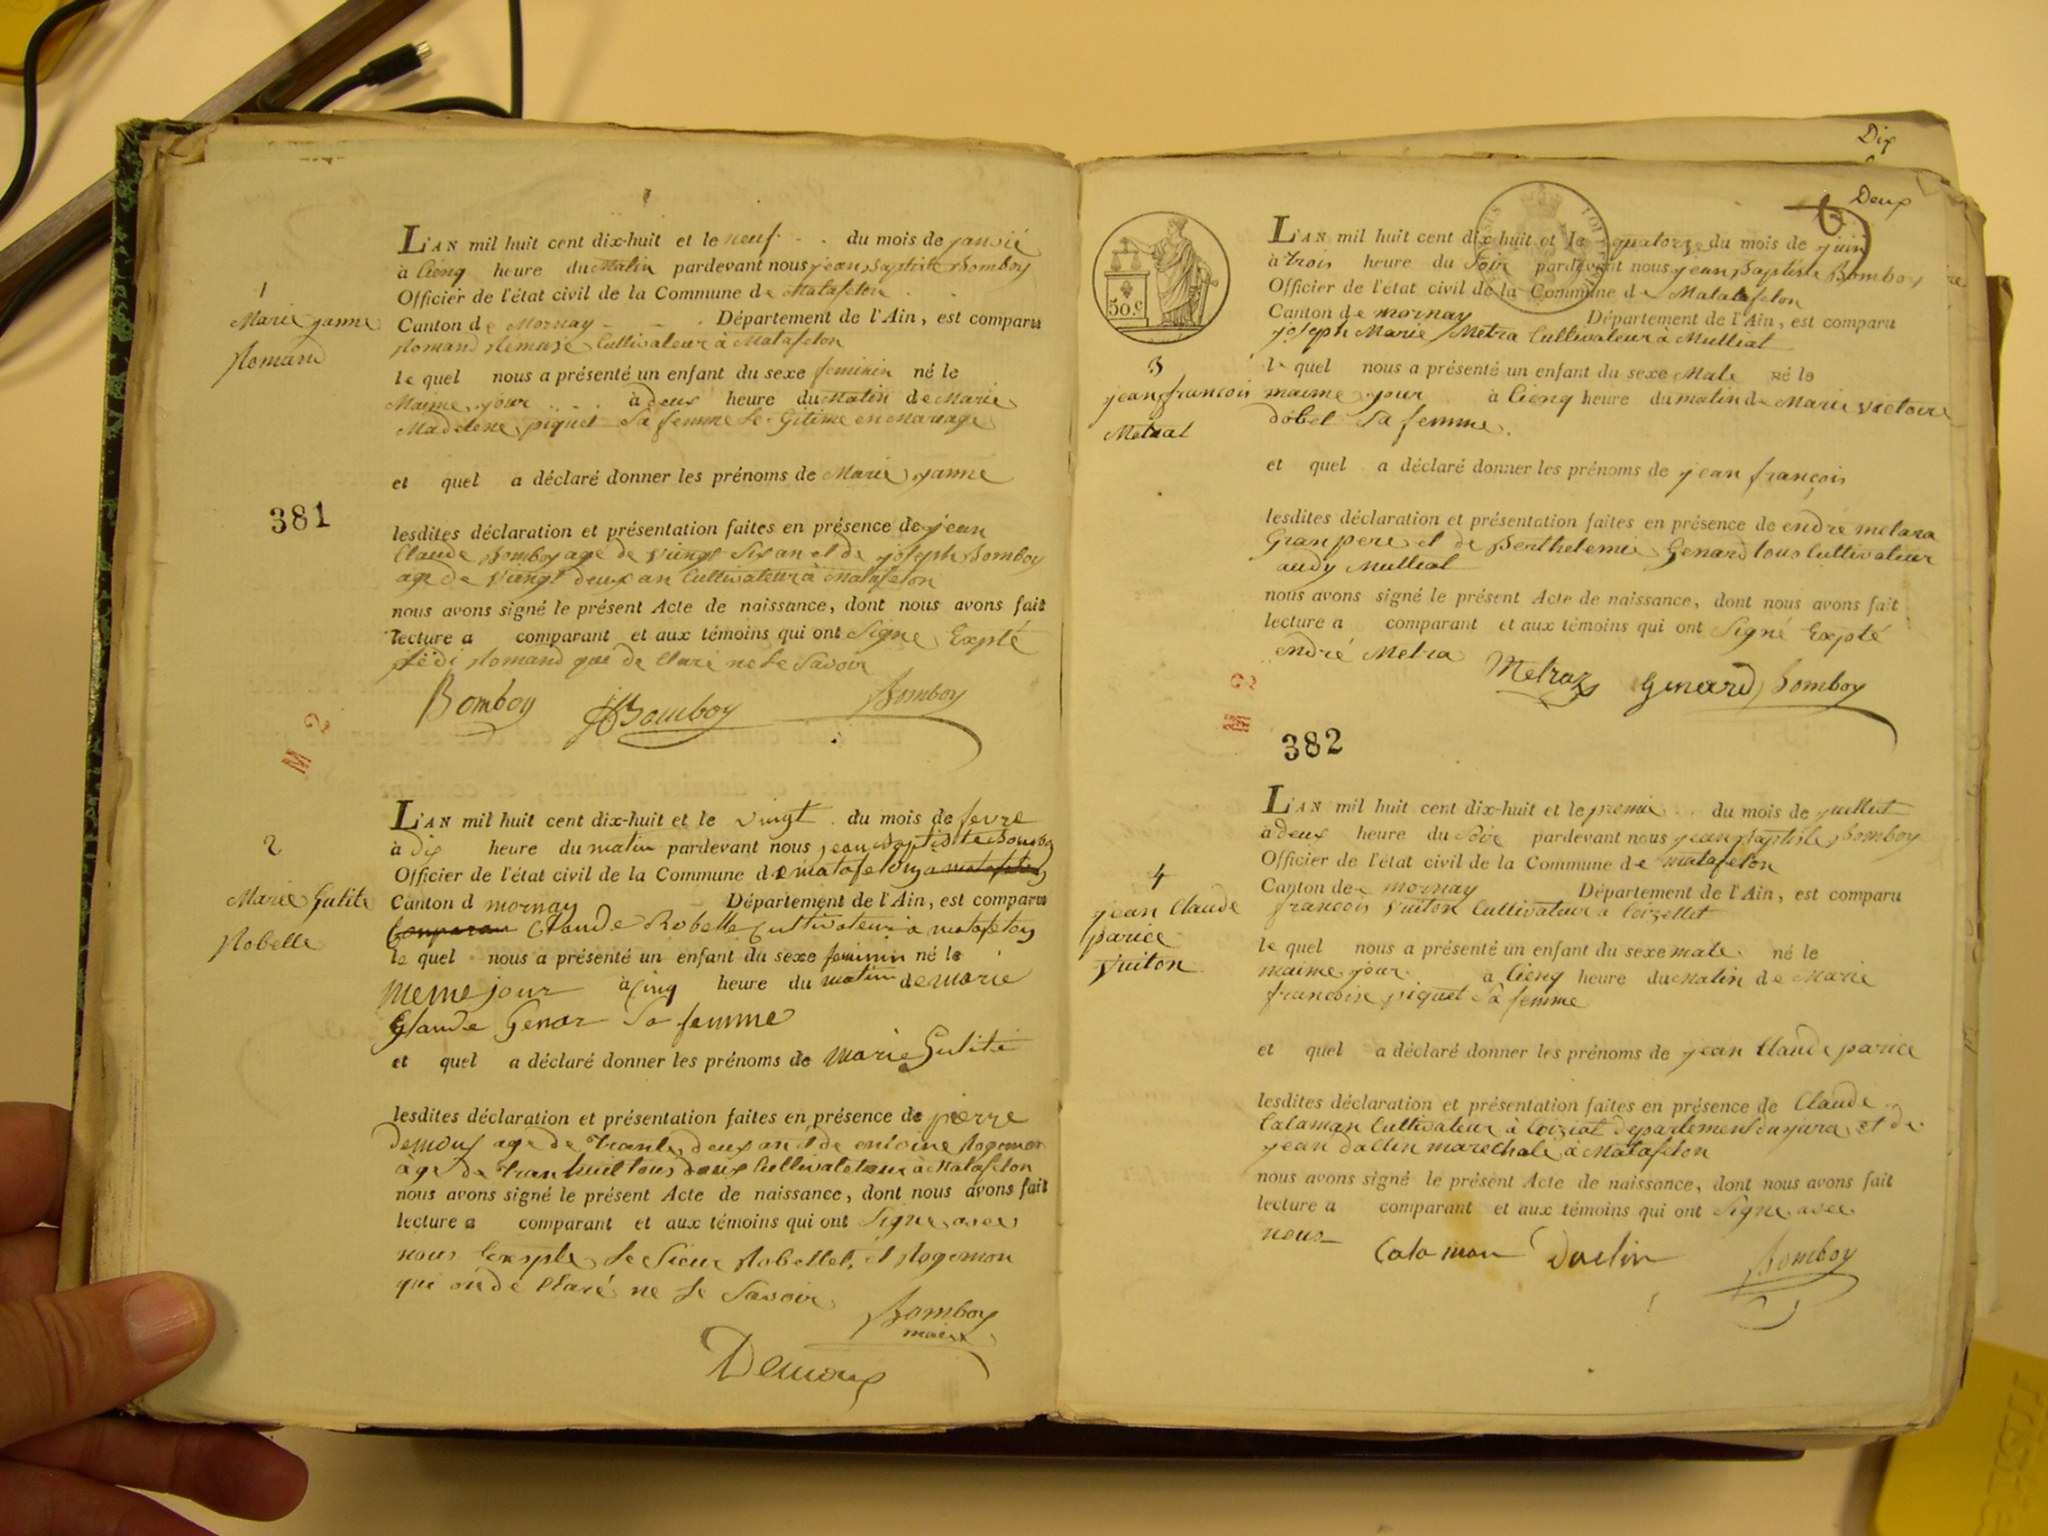 L'AN mil huit cent dix-huit et le neuf du mois de janvié
à cienq heure du Matin pardevant nous jean Baptiste Bomboy
Officier de l'état civil de la Commune de Matafelon
1
Marie janne
Romand
Canton de Mornay Département de l'Ain, est comparu
Romand Cultivateur à Matafelon
le quel nous a présenté un enfant du sexe feminin né le
Maime jour à deux heure du Matin de Marie
Madelene piquet Sa femme Le Gitime en Mariage
et quel a déclaré donner les prénoms de Marie janne
381
lesdites déclaration et présentation faites en présence de jean
Claude Bomboy age de vingt Six an et de joseph Bomboy
age de vingt deux an Cultivateur à Matafelon
nous avons signé le présent Acte de naissance, dont nous avons fait
lecture a comparant et aux témoins qui ont Signe Expté
Romand qui de Claré ne Le Savoir
Bomboy JBBomboy Bomboy
M 2
L'AN mil huit cent dix-huit et le vingt du mois de fevre
à dix heure du matin pardevant nous jean Baptiste Bomboy
Officier de l'état civil de la Commune de matafelon a matafelon
2
Marie Gulite
Robelle
Canton d mornay Département de l'Ain, est comparu
Comparau Claude Robelle Cultivateur a matafelon
le quel nous a présenté un enfant du sexe feminin né le
meme jour à cinq heure du matin de marie
Glaude Genar Sa femme
et quel a déclaré donner les prénoms de marie Gulite
lesdites déclaration et présentation faites en présence de pierre
Demoux age de trante deux an et de entoine Rogemon
age de tran huit tous deux Cultivateur à Matafelon
nous avons signé le présent Acte de naissance, dont nous avons fait
lecture a comparant et aux témoins qui ont Signe avec
nous Le Sieur Robellet, et Rogemon
qui on de Claré ne Le Savoir
Bomboy
maire
Demoux
Dix
Deux
50.c
L'AN mil huit cent dix-huit et le quatorz du mois de juin
à trois heure du Soir pardevant nous jean Baptiste Bomboy
Officier de l'état civil de la Commune de Matafelon
Canton de mornay Département de l'Ain, est comparu
joseph Marie Metra Cultivateur a Mulliat
3
jean françois
Metral
le quel nous a présenté un enfant du sexe Male né le
maime jour à cienq heure du matin de Marie victoire
dobel Sa femme
et quel a déclaré donner les prénoms de jean françois
lesdites déclaration et présentation faites en présence de endré metara
Gran pere et de Berthelemie Genard tous Cultivateur
audy Mulliat
nous avons signé le présent Acte de naissance, dont nous avons fait
lecture a comparant et aux témoins qui ont Signé Expté
endré Metra
Metraz Genard Bomboy
M 2
382
L'AN mil huit cent dix-huit et le premie du mois de juillet
à deux heure du Soir pardevant nous jean Baptiste Bomboy
Officier de l'état civil de la Commune de matafelon
4
jean Claude
parice
Vuiton
Canton de mornay Département de l'Ain, est comparu
francois Vuiton Cultivateur a Corzellet
le quel nous a présenté un enfant du sexe male né le
maime jour à cienq heure du Matin de Marie
francoise piquet Sa femme
et quel a déclaré donner les prénoms de jean Claude parice
lesdites déclaration et présentation faites en présence de Claude
Calaman Cultivateur à Coiziat departement du jura et de
jean daclin marechale à Matafelon
nous avons signé le présent Acte de naissance, dont nous avons fait
lecture a comparant et aux témoins qui ont Signe avec
nous
Cala man Daclin Bomboy